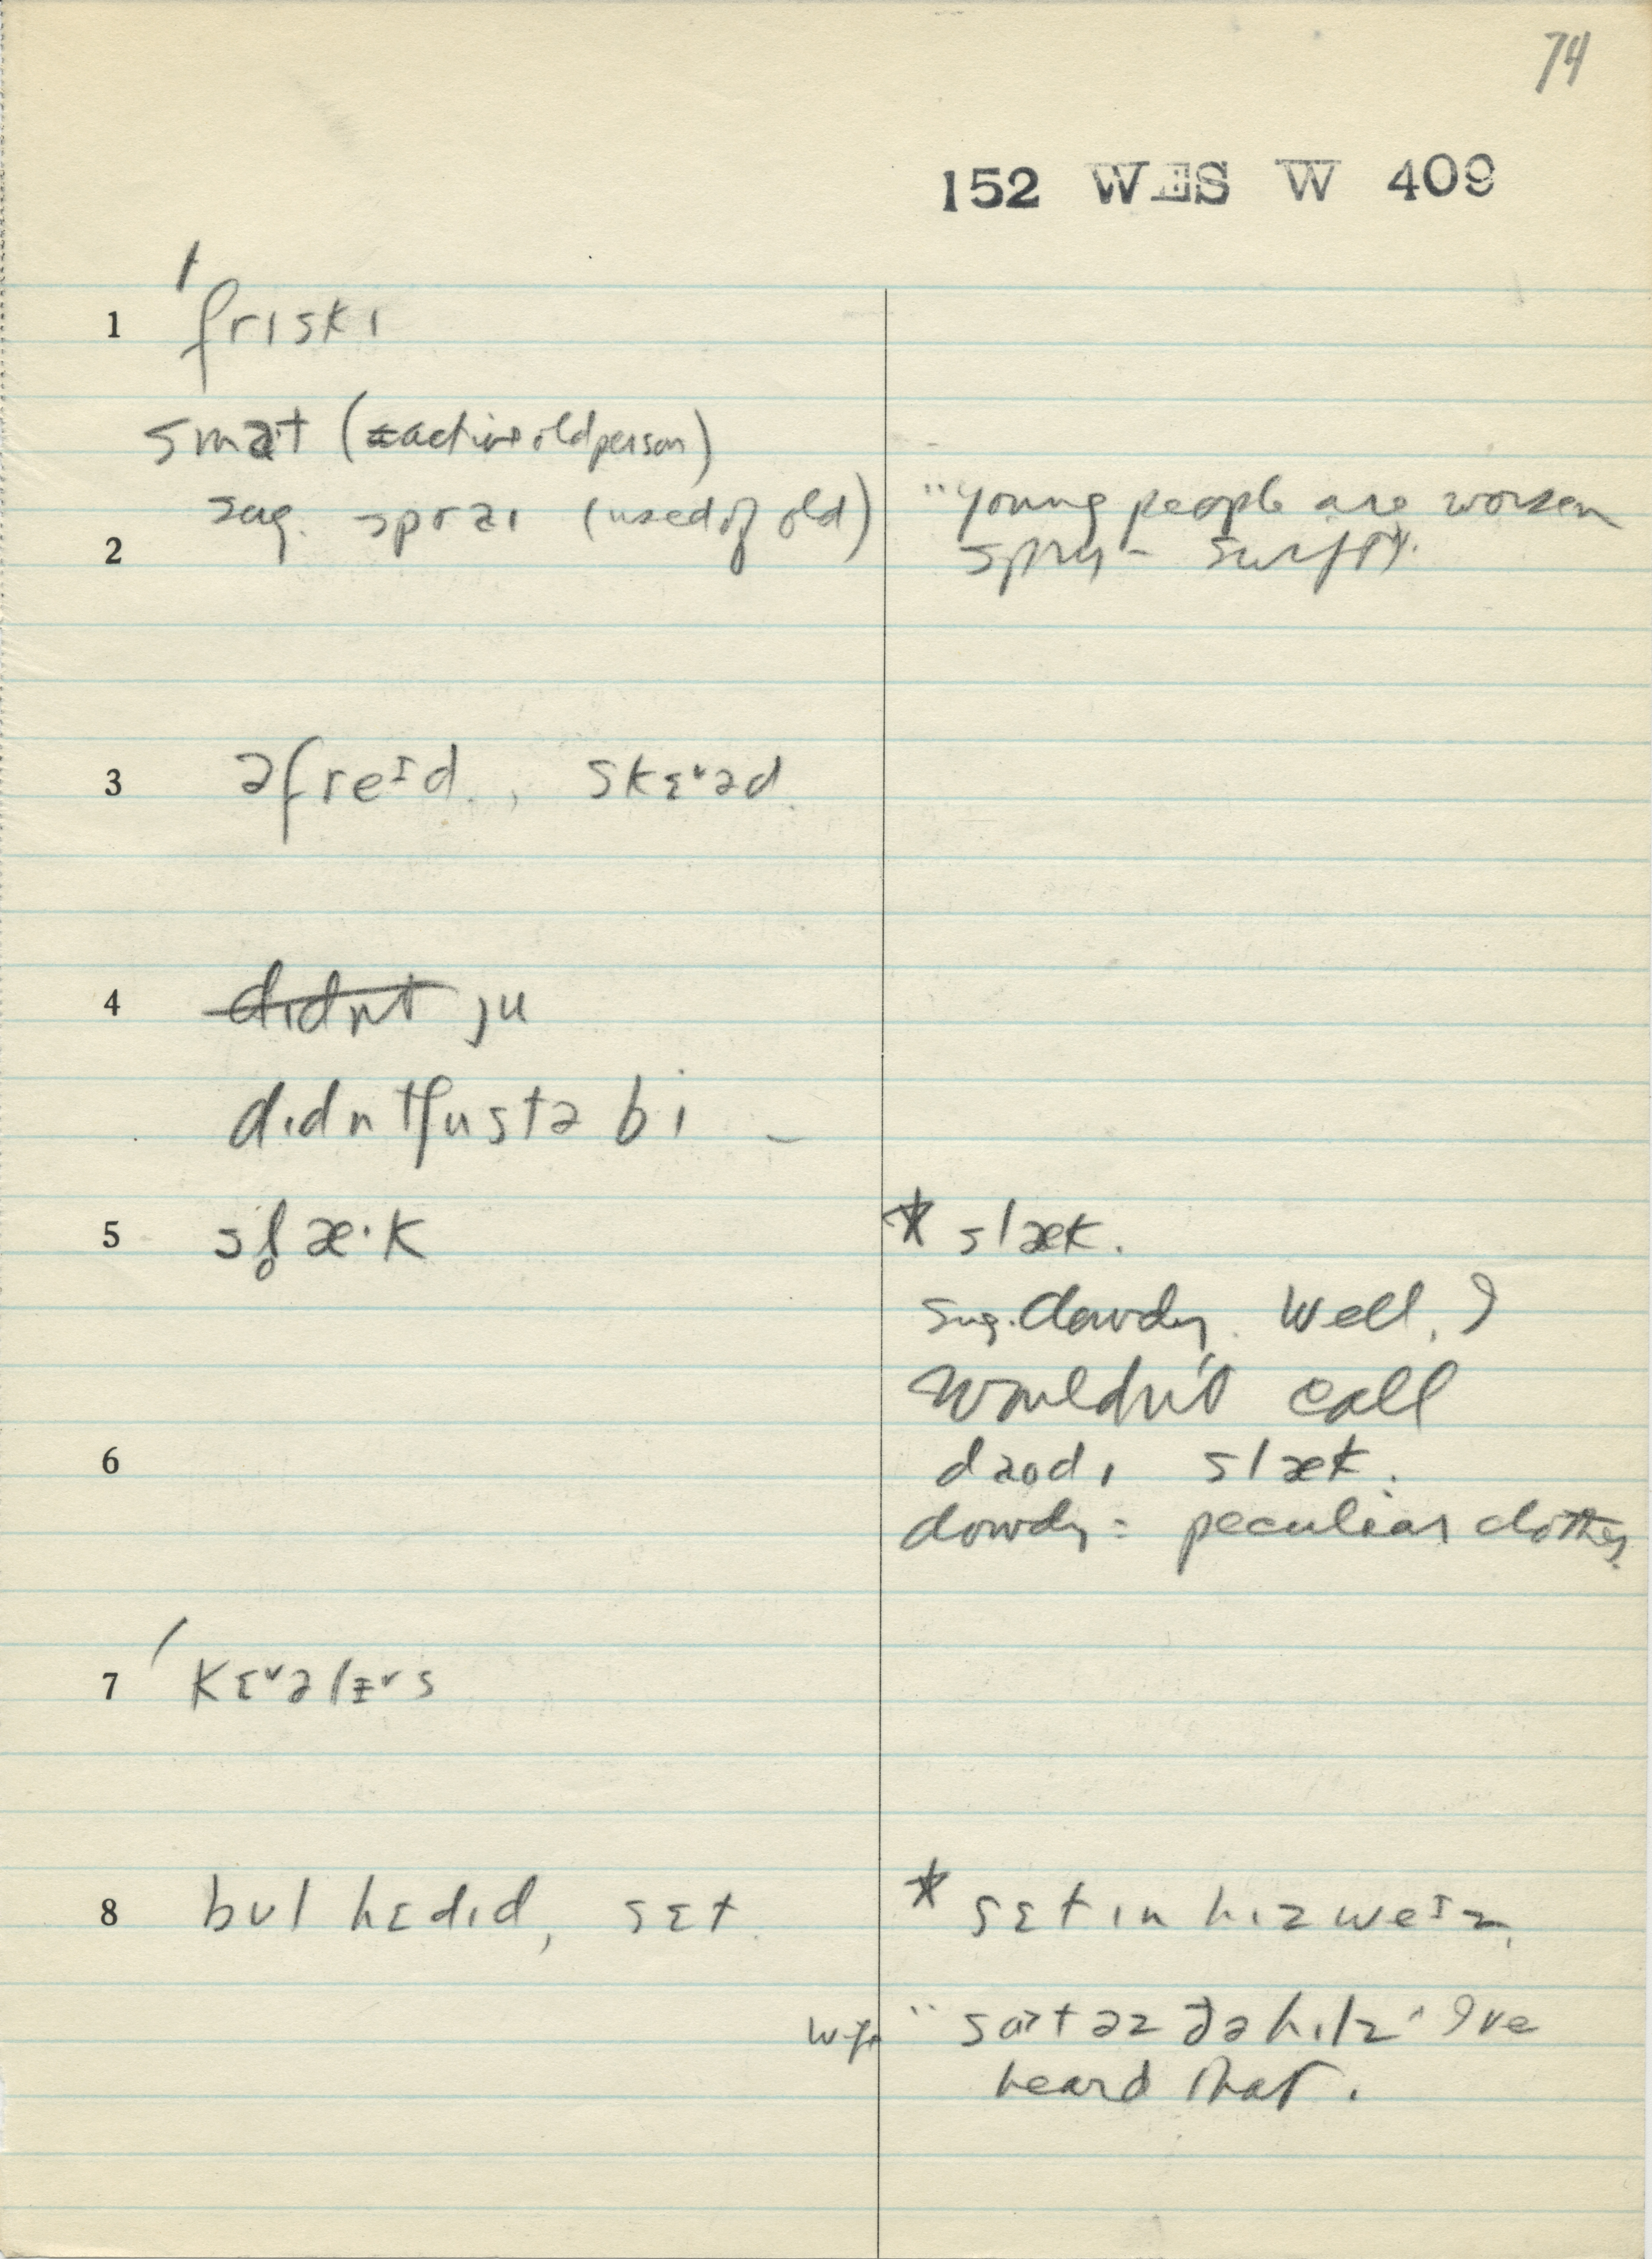 74
152 WES W 409
1 ˈfrɪskɪ
smaˑt (active old person)
sug. sprɑɪ (used of old)
"Young people are
2 spry - 
3 əfreᴵd, skɛ˅əd
4 d̶ɪ̶d̶n̶t̶ ju
dɪdntʃustə bi –
5 sl̥æ·k
* slæk.
sug. dowdy. Well, I
wouldn't call
6 daʊdɪ slæk.
dowdy = peculiar clothes
7 ˈkɛ˅əlɨ˅s
8 bʊlhɛdɪd, sɛt
* sɛt ɪn hɪz weᴵz,
wife "sɒt əz ðə hɪlz" I've
heard that.